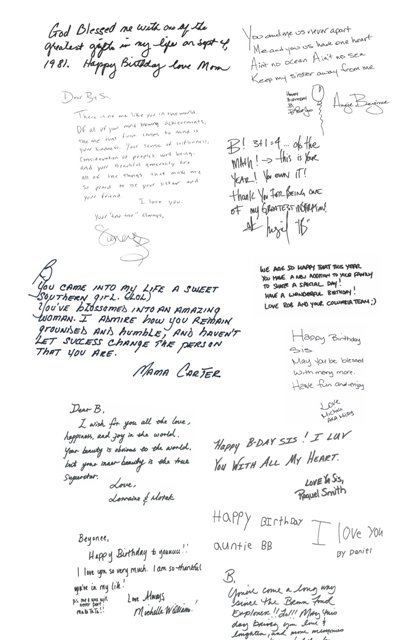 God Blessed me with one of the
greatest gifts in my life on Sept 4,
1981. Happy Birthday love Mom
You and me us never apart
Me and you us have one heart
Ain't no ocean Ain't no sea
Keep my sister away from me
Angie Beyince
Dear Big Sis,
There is no one like you in this world.
Of all of your mind blowing achievements,
the one that first comes to mind is
your kindness. Your sense of selflessness,
consideration of people's well being,
and your beautiful generosity are
all of the things that make me
so proud to be your sister and
your friend.
I love you.
always,
B! 3+1=4... do the
MATH! → this is YOUR
YEAR! YOU OWN IT!
thank You for being one
of my GREATEST INSPIRATIONS!
B
YOU CAME INTO MY LIFE A SWEET
SOUTHERN GIRL. (LOL)
YOU'VE BLOSSOMED INTO AN AMAZING
WOMAN. I ADMIRE HOW YOU REMAIN
GROUNDED AND HUMBLE, AND HAVEN'T
LET SUCCESS CHANGE THE PERSON
THAT YOU ARE.
MAMA CARTER
WE ARE SO HAPPY THAT THIS YEAR
YOU HAVE A NEW ADDITION TO YOUR FAMILY
TO SHARE A SPECIAL DAY!
HAVE A WONDERFUL BIRTHDAY!
LOVE ROB AND YOUR COLUMBIA TEAM ;)
Happy Birthday
Sis
May you be blessed
With many more.
Have fun and enjoy
Love
Dear B.
I wish for you all the love,
happiness, and joy in the world.
Your beauty is obvious to the world,
but your inner beauty is the true
superstar.
Love,
Lorraine &
Happy B-DAY SIS! I LUV
YOU WITH ALL MY HEART.
LOVE Ya Sis,
Raquel Smith
Happy BIRTHDAY
auntie BB
I love You
BY Daniel
Beyonce,
Happy Birthday to youuuu!!
I love you so very much. I am so thankful
you're in my life!
Love Always
Michelle Williams
B.
You've come a long way
since the Brown
Explorer!! Lol!! May this
day bring you love &
laughter, and some memories